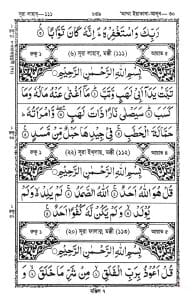 সূরা লাহাব—১১১ আম্মা ইয়াতাসা-আলূন—৩০
رَبِّكَ وَاسْتَغْفِرْهُ ۚ إِنَّهُ كَانَ تَوَّابًا
রুকু ১ (৬) সূরা লাহাব, মক্কী (১১১) আয়াত ৫
بِسْمِ اللهِ الرَّحْمٰنِ الرَّحِيْمِ
تَبَّتْ يَدَا أَبِي لَهَبٍ وَتَبَّ مَا أَغْنَى عَنْهُ مَالُهُ وَمَا
كَسَبَ سَيَصْلَى نَارًا ذَاتَ لَهَبٍ وَامْرَأَتُهُ
حَمَّالَةَ الْحَطَبِ فِي جِيدِهَا حَبْلٌ مِّنْ مَّسَدٍ
রুকু ১ (২২) সূরা ইখলাছ, মক্কী (১১২) আয়াত ৪
بِسْمِ اللهِ الرَّحْمٰنِ الرَّحِيْمِ
قُلْ هُوَ اللهُ أَحَدٌ اللهُ الصَّمَدُ لَمْ يَلِدْ وَلَمْ
يُولَدْ وَلَمْ يَكُنْ لَّهُ كُفُوًا أَحَدٌ
রুকু ১ (২০) সূরা ফালাক্ব, মক্কী (১১৩) আয়াত ৫
بِسْمِ اللهِ الرَّحْمٰنِ الرَّحِيْمِ
قُلْ أَعُوذُ بِرَبِّ الْفَلَقِ مِنْ شَرِّ مَا خَلَقَ وَ
মঞ্জিল ৭